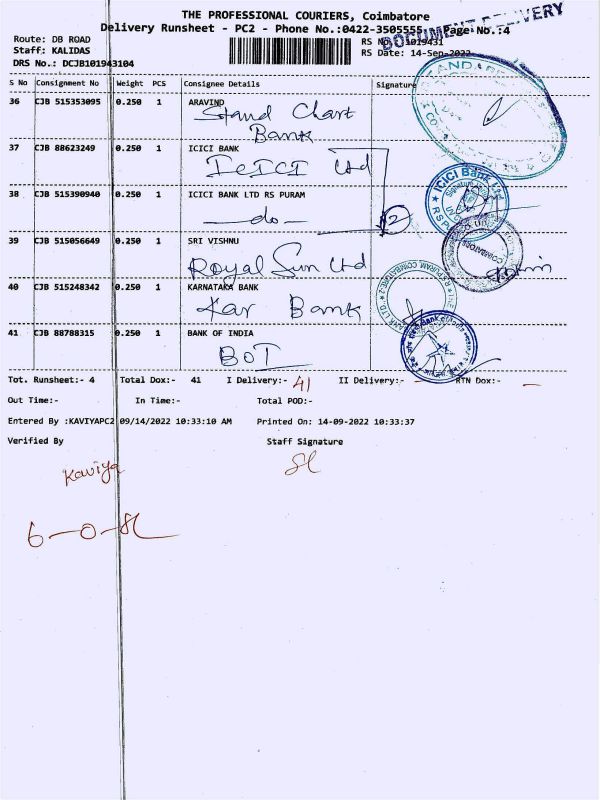 THE PROFESSIONAL COURIERS, Coimbatore
DOCUMENT DELIVERY
Delivery Runsheet - PC2 - Phone No.:0422-3505555 Page No.:4
Route: DB ROAD
RS No. 1019431
Staff: KALIDAS
RS Date: 14-Sep-2022
DRS No.: DCJB101943104
S No Consignment No Weight PCS Consignee Details Signature
36 CJB 515353095 0.250 1 ARAVIND
Stand Chart
Bank
37 CJB 88623249 0.250 1 ICICI BANK
ICICI Ltd
38 CJB 515390940 0.250 1 ICICI BANK LTD RS PURAM
ICICI Bank Ltd
do
2
39 CJB 515056649 0.250 1 SRI VISHNU
Royal Sun Ltd
40 CJB 515248342 0.250 1 KARNATAKA BANK
Kar Bank
41 CJB 88788315 0.250 1 BANK OF INDIA
BOI
Tot. Runsheet:- 4 Total Dox:- 41 I Delivery:- 41 II Delivery:- RTN Dox:- –
Out Time:- In Time:- Total POD:-
Entered By :KAVIYAPC2 09/14/2022 10:33:10 AM Printed On: 14-09-2022 10:33:37
Verified By Staff Signature
Kaviya